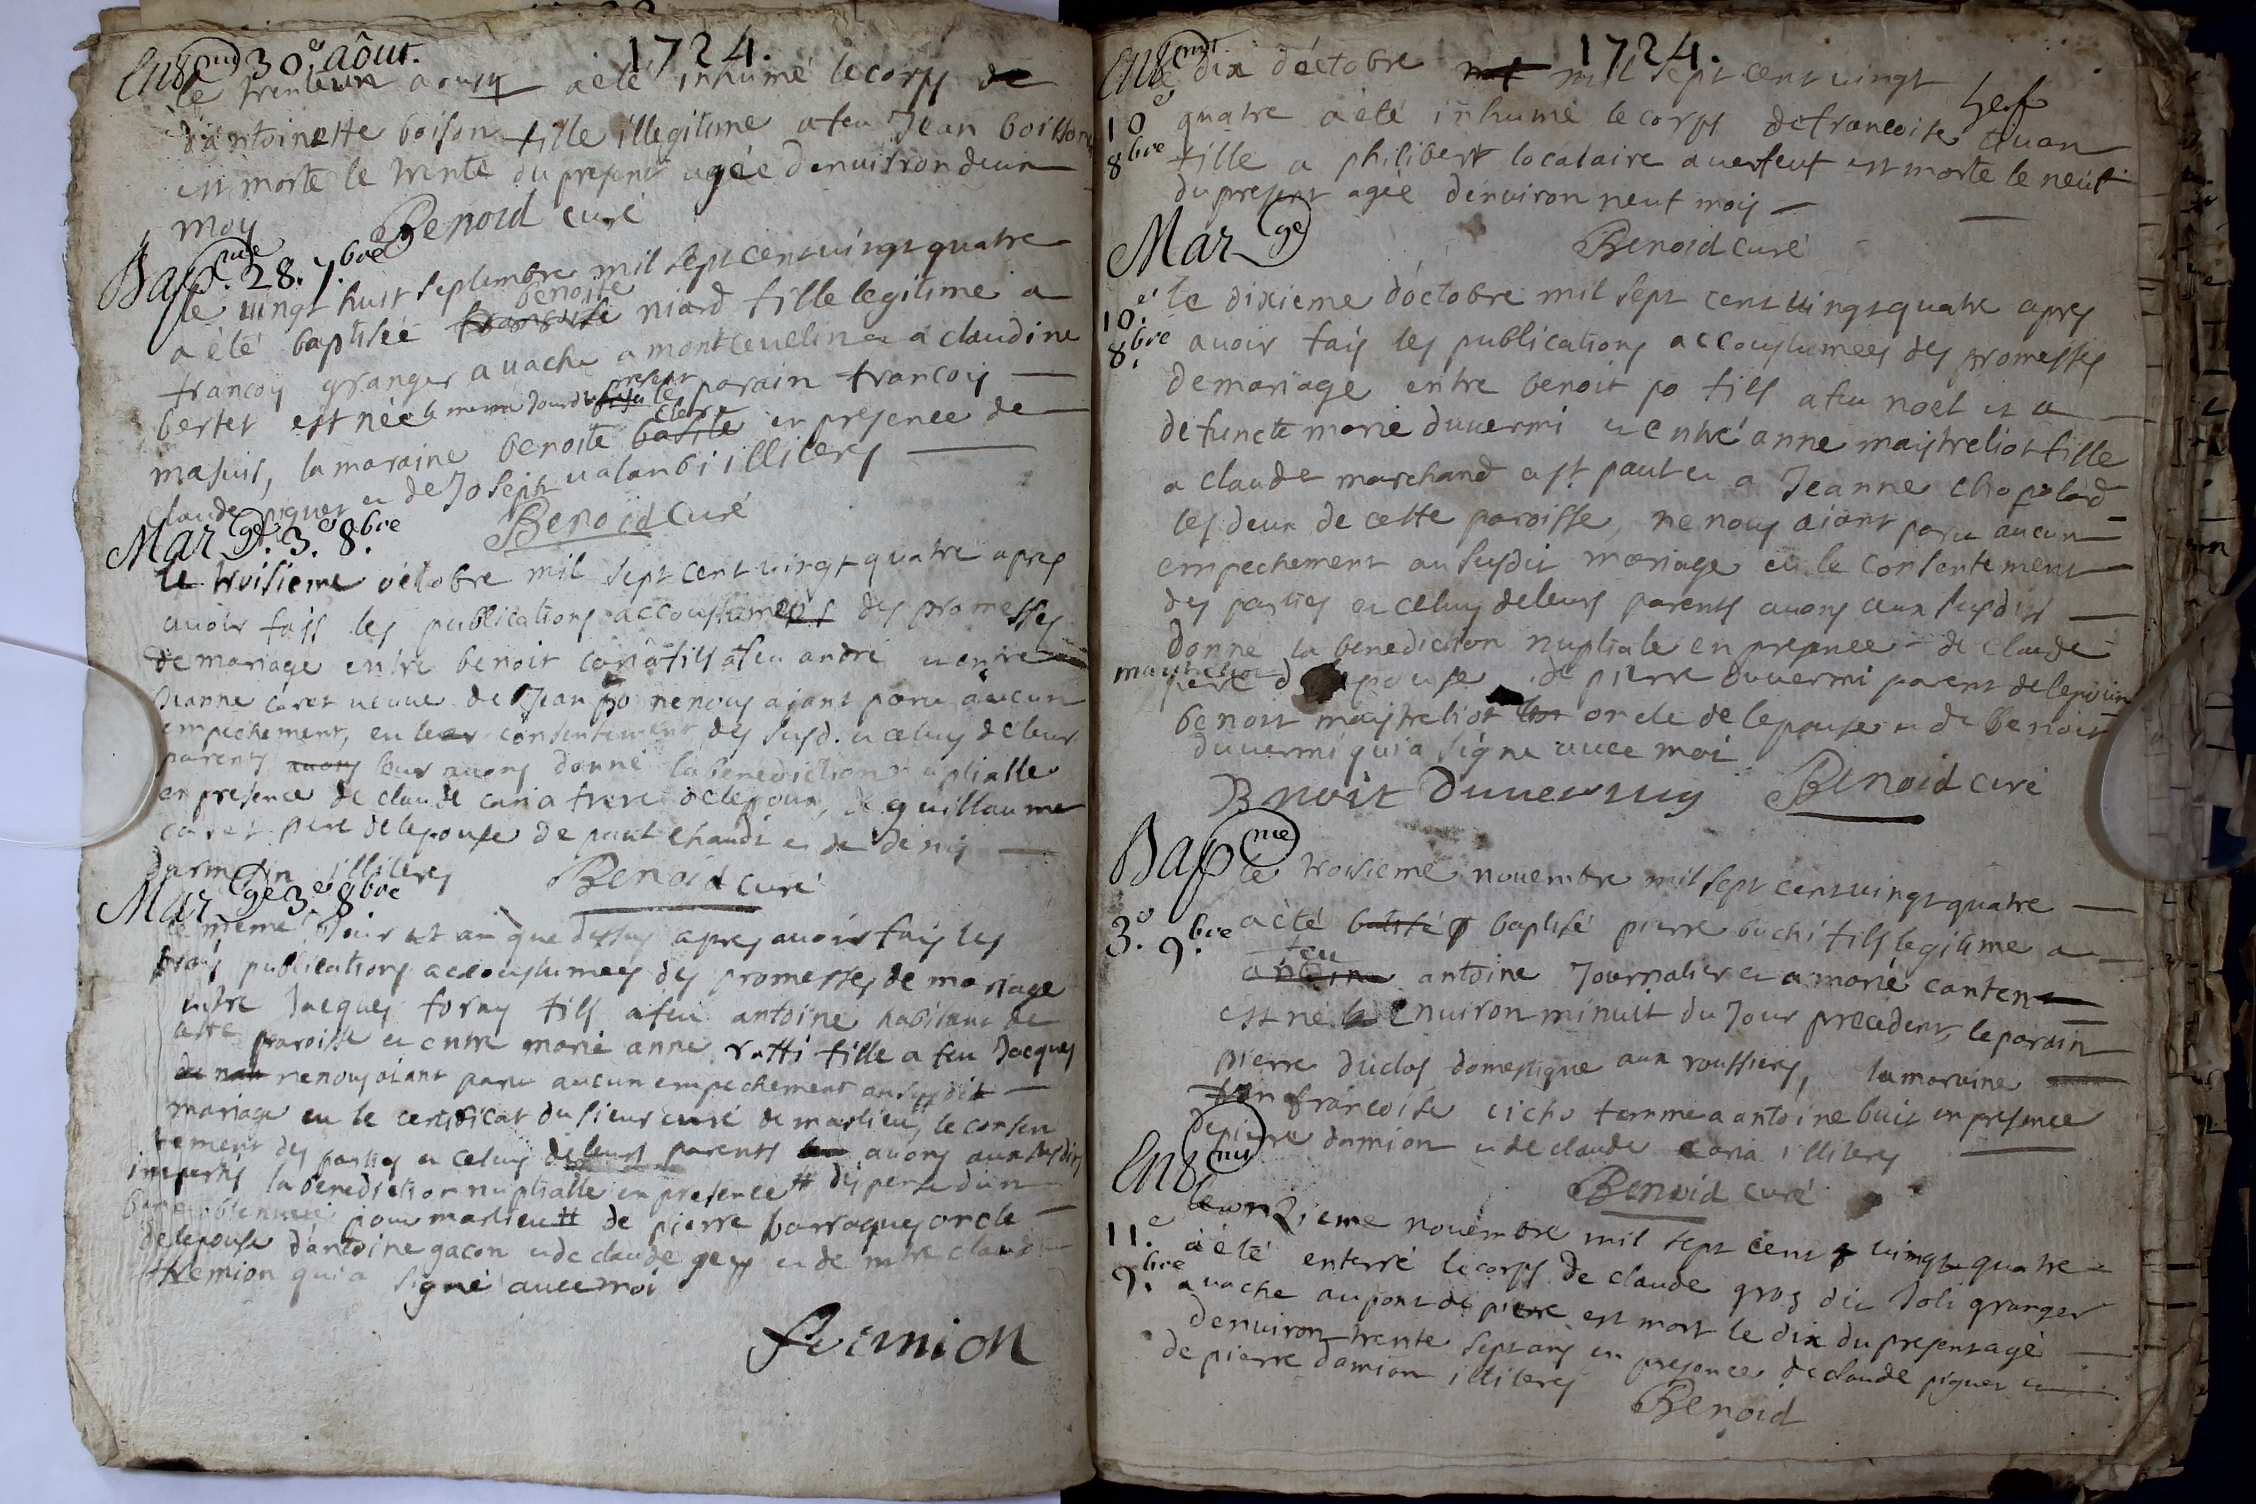 1724.
Ens.mt 30.e aôut.
le trenteun aoust a été inhumé le corps de
d'antoinette boison fille illegitime a feu Jean boisson
est morte le trente du present agée denuiron deux
moy Benoid curé
Bap.me 28. 7.bre
le uingt huit septembre mil sept cent uingt quatre
benoite
a été baptisée francoise niard fille legitime a
francoy granger a uache a montceuelin et a claudine
bertet est née le meme jour parain francoy
present
clere
masuit, la maraine benoite basile en presence de
claude piquet et de Joseph ualanbi illiteres
Benoid Curé
Mar.ge 3.e 8.bre
le troisieme octobre mil sept cent uingt quatre apres
auoir fais les publications accoustumees des promesses
de mariage entre benoit caria fils a feu andré et entre
Jeanne caret ueuue de Jean po ne nous aiant paru aucun
empechement, eu leur consentement des susd. et celuy de leur
parents auons leur auons donné la benediction nuptialle
en presence de claude caria frere de lepoux, de guillaume
caret pere de lepouse de paul chaudi et de denis
darmion illiteres Benoid curé
Mar.ge 3.e 8.bre
le meme Jour et an que dessus apres auoir fais les
trois publications accoustumees des promesses de mariage
entre Jacques forny fils a feu antoine habitant de
cette paroisse et entre marie anne ratti fille a feu Jacques
ne nous aiant paru aucun empechement au susdit
mariage eu le certificat du sieur curé de marlieu, le consen
tement des parties et celuy de leurs parents auons aux susdits
imparti la benediction nuptialle en presence # dispense d'un
ban obtenue pour marlieu # de pierre barraques oncle
de lepouse d'antoine gacon et de claude gey et de mtre claude
fremion qui a signé auec moi
fremion
1724.
Ens.mt
10.e
8.bre
le dix d'octobre mil sept cent uingt
quatre a été inhumé le corps de francoise
fille a philibert locataire a uerfeut est morte le neuf
du present agée denuiron neuf mois
Benoid curé
Mar.ge
10.e
8.bre
le dixieme d'octobre mil sept cent uingt quatre apres
auoir fais les publications accoustumees des promesses
de mariage entre benoit po fils a feu noel et a
defuncte marie duuermi et entre anne maistreliot fille
a claude marchand a st. paul et a Jeanne chapolard
les deux de cette paroisse, ne nous aiant paru aucun
empechement au susdit mariage eu le consentement
des parties et celuy de leurs parents auons aux susdits
donné la benediction nuptiale en presence de claude
maistreliot
pere d lepouse de pierre duuermi parent de lepoux
benoit maistreliot oncle de lepouse et de benoit
duuermi qui a signé auec moi
Benoit Duuermy Benoid curé
Bap.me
3.e 9.bre
le troisieme nouembre mil sept cent uingt quatre
a été baptisé pierre buchi fils legitime a
feu
antoine antoine Journalier et a marie canten
est né enuiron minuit du Jour precedent, le parain
pierre duclos domestique aux roussieres, la maraine
francoise cicho femme a antoine buit en presence
de pierre damion et de claude caria illiteres
Benoid curé
Ens.mt
11.e
9.bre
le onzieme nouembre mil sept cent uingt quatre
a été enterré le corps de claude gros dit Joli granger
a uache au pont de pierre est mort le dix du present agé
denuiron trente sept ans en presence de claude piquet et
de pierre damion illiteres
Benoid